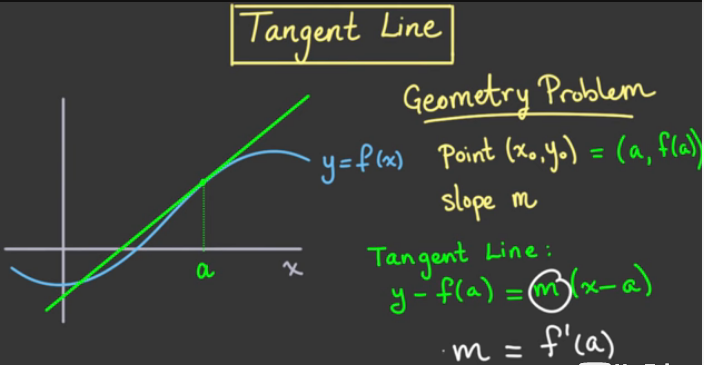 Tangent Line
Geometry Problem
y=f(x)
Point (x₀,y₀) = (a, f(a))
slope m
Tangent Line:
a
x
y-f(a) = m(x-a)
m = f'(a)